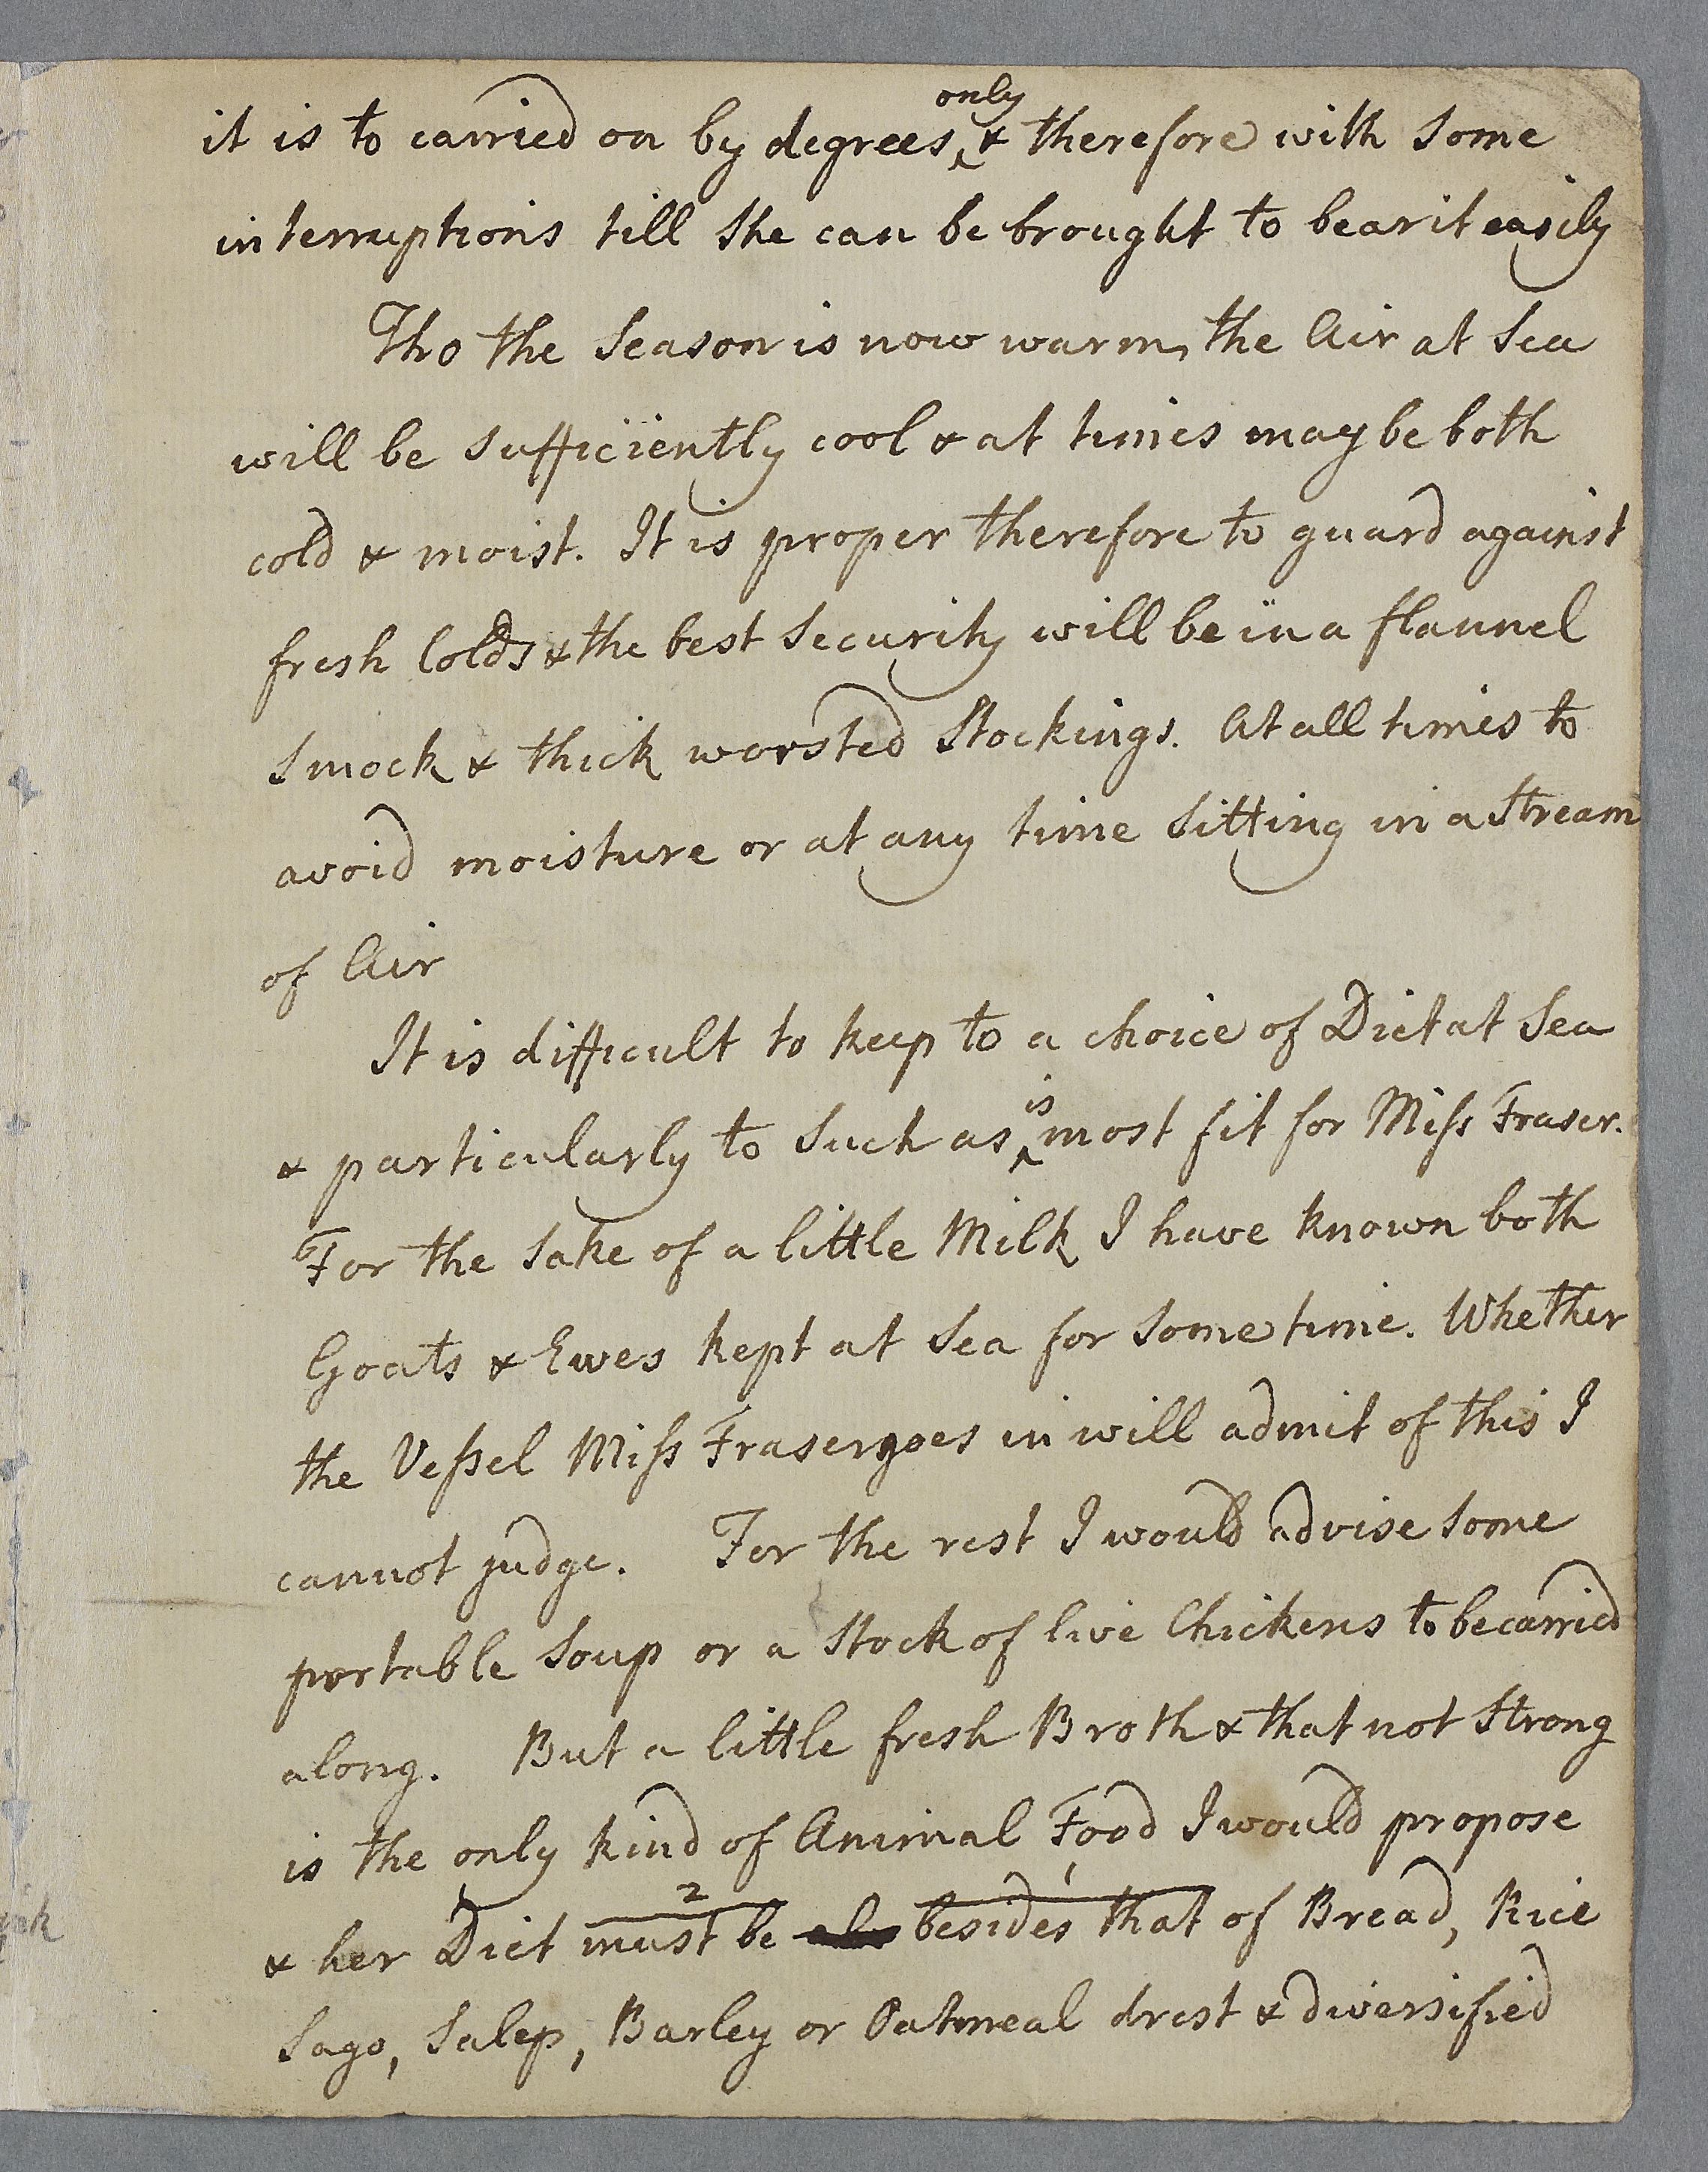 it is to carried on by degrees, only & therefore with some
interruptions till she can be brought to bear it easily
Tho the Season is now warm, the Air at Sea
will be sufficiently cool & at times may be both
cold & moist. It is proper therefore to guard against
fresh Colds & the best Security will be in a flannel
Smock & thick worsted Stockings. At all times to
avoid moisture or at any time sitting in a Stream
of Air
It is difficult to keep to a choice of Diet at Sea
& particularly to such as is most fit for Miſs Fraser.
For the sake of a little Milk I have known both
Goats & Ewes kept at Sea for some time. Whether
the Veſsel Miſs Fraser goes in will admit of this I
cannot judge. For the rest I would advise some
portable Soup or a Stock of live Chickens to be carried
along. But a little fresh Broth & that not Strong
is the only kind of Animal Food I would propose
& her Diet 2 must be 1 besides that of Bread, Rice
Sago, Salep, Barley or Oatmeal drest & diversified